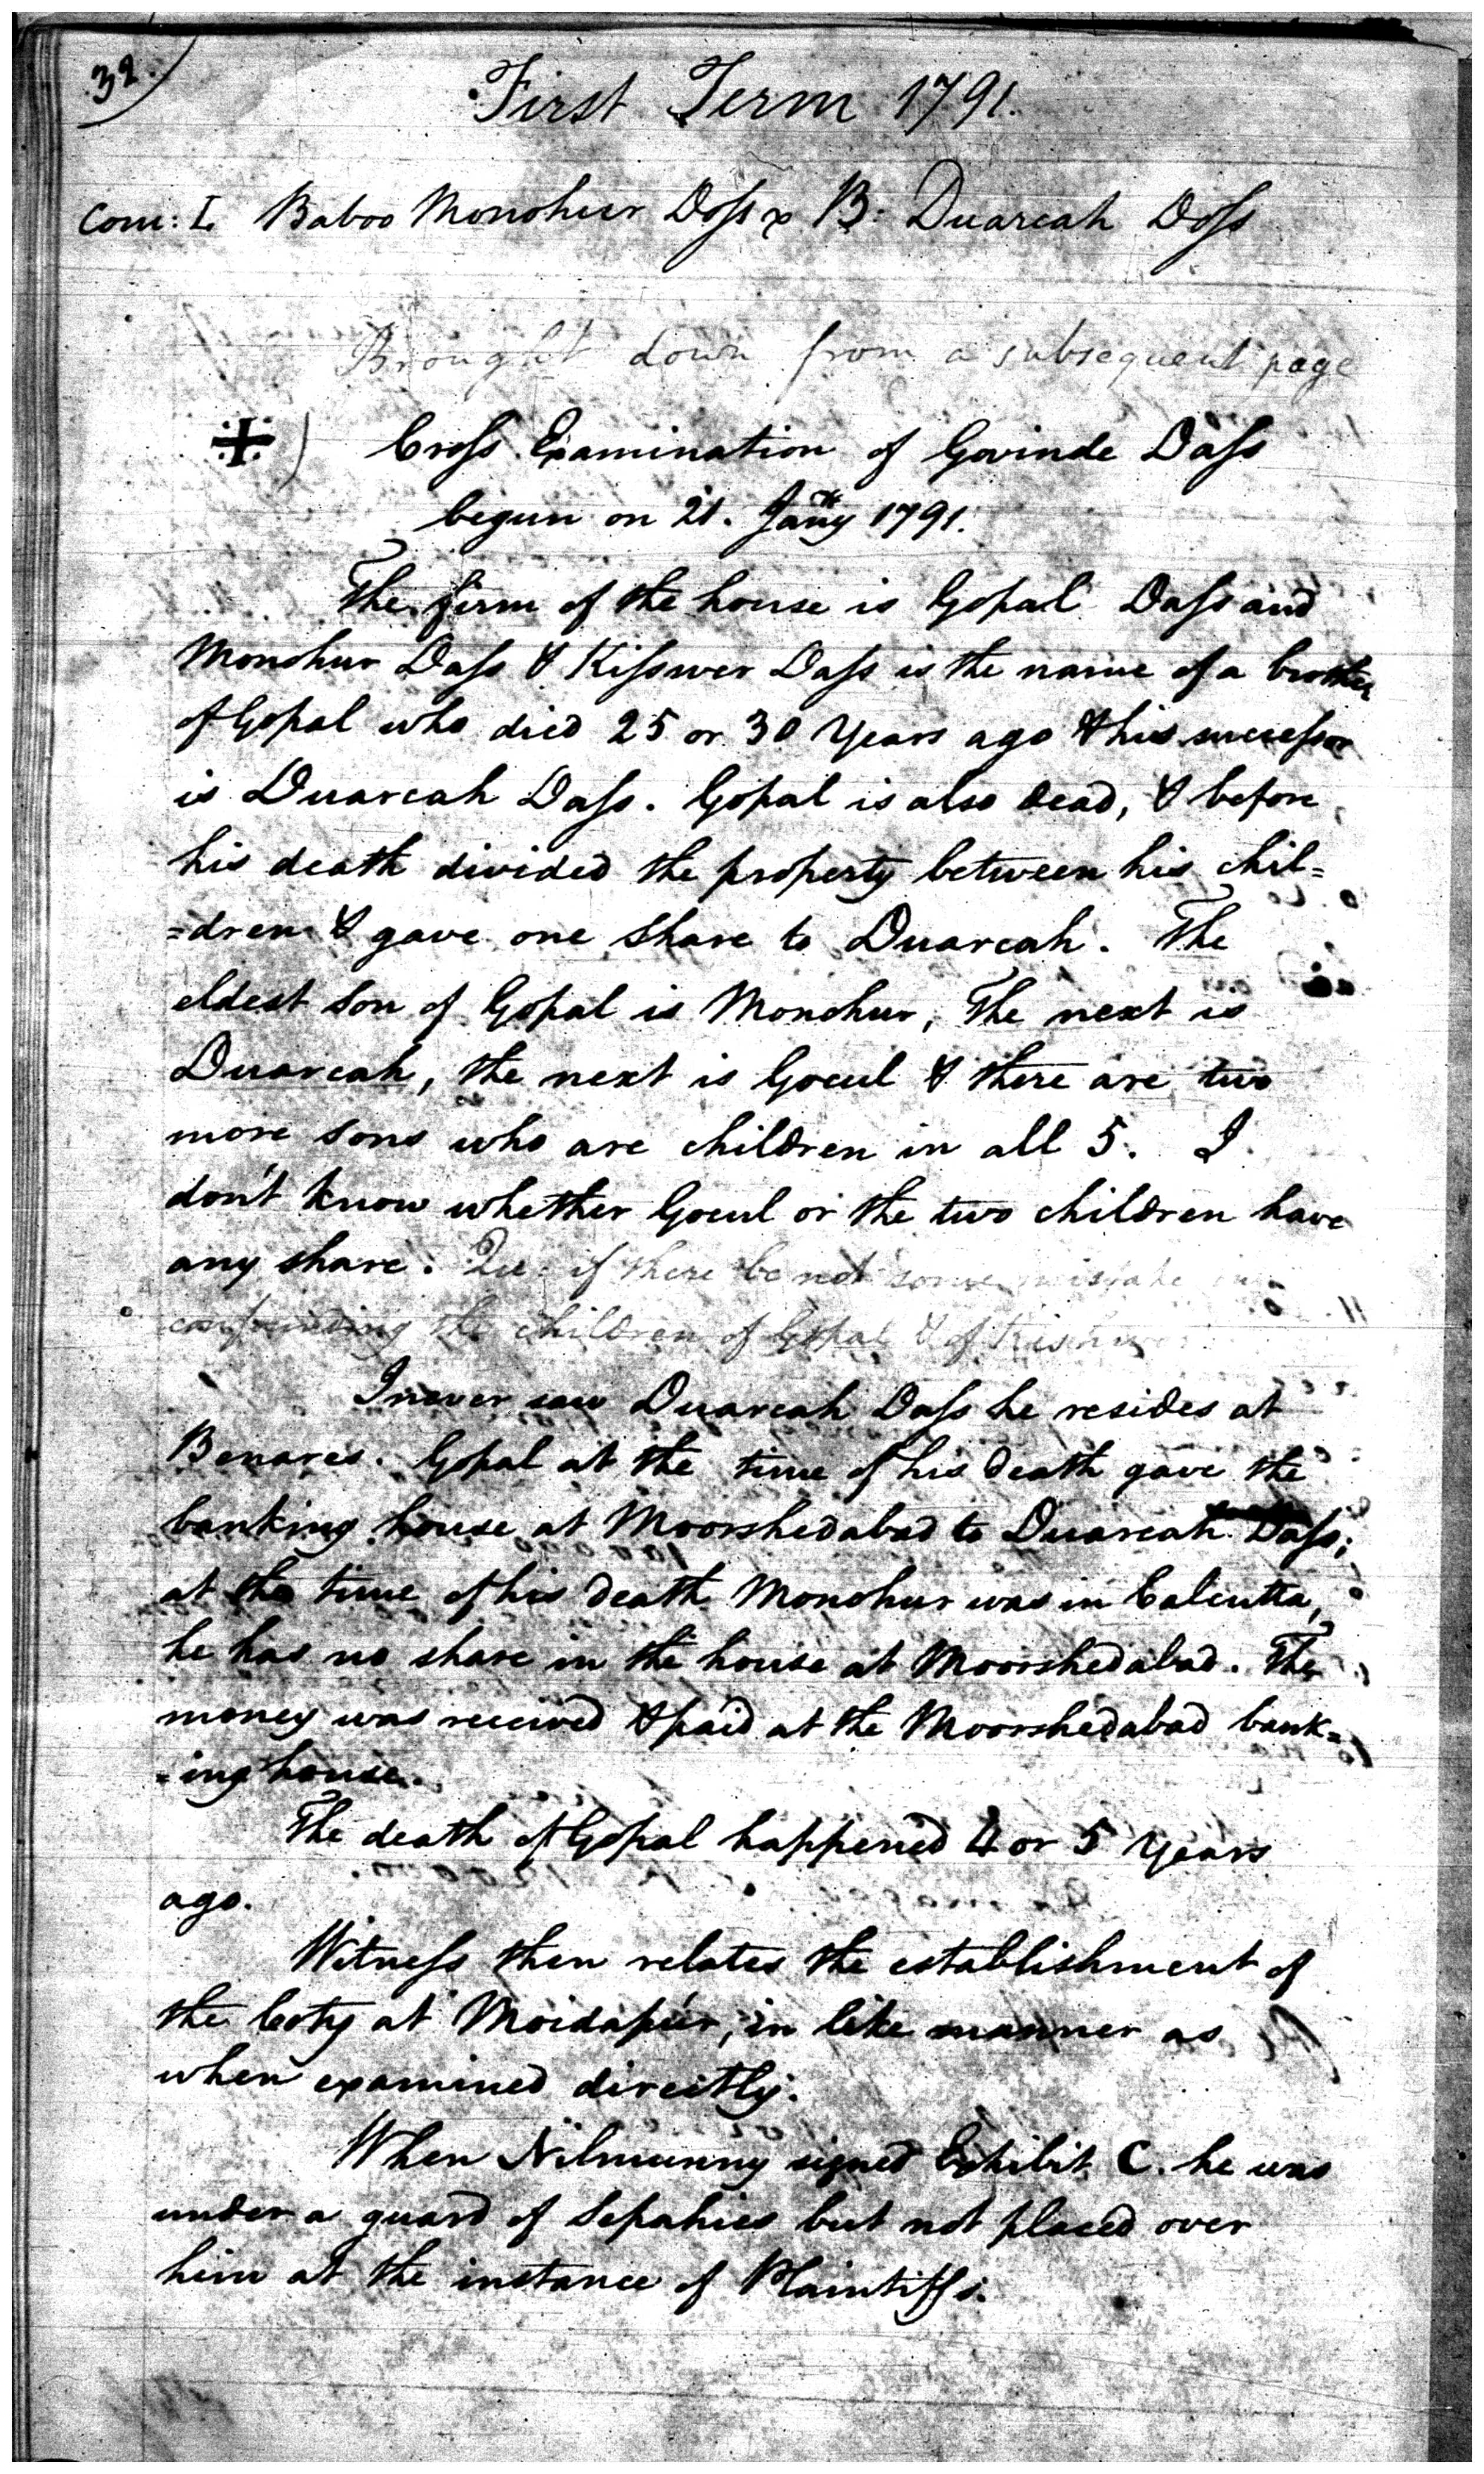 32
First Term 1791.
Com: L Baboo Monohur Doss & B: Duarcah Doss
Brought down from a subsequent page
Cross Examination of Govinde Dass
begun on 21. Janry 1791.
The firm of the house is Gopal Dass and
Monohur Dass & Kisswer Dass is the name of a brother
of Gopal who died 25 or 30 Years ago & his successor
is Duarcah Dass. Gopal is also dead, & before
his death divided the property between his chil=
=dren & gave one share to Duarcah. The
eldest son of Gopal is Monohur, The next is
Duarcah, the next is Gocul & there are two
more sons who are children in all 5. I
don't know whether Gocul or the two children have
any share. Qu: if there be not some mistake in
confounding the children of Gopal & of
I never saw Duarcah Dass he resides at
Benares. Gopal at the time of his death gave the
banking house at Moorshedabad to Duarcah Dass;
at the time of his death Monohur was in Calcutta,
he has no share in the house at Moorshedabad. The
money was received & paid at the Moorshedabad bank=
=ing house.
The death of Gopal happened 4 or 5 Years
ago.
Witness then relates the establishment of
the Coty at Moidapúr, in like manner as
when examined directly.
When Nilmunny signed Exhibit C. he was
under a guard of Sepahies but not placed over
him at the instance of Plaintiffs.